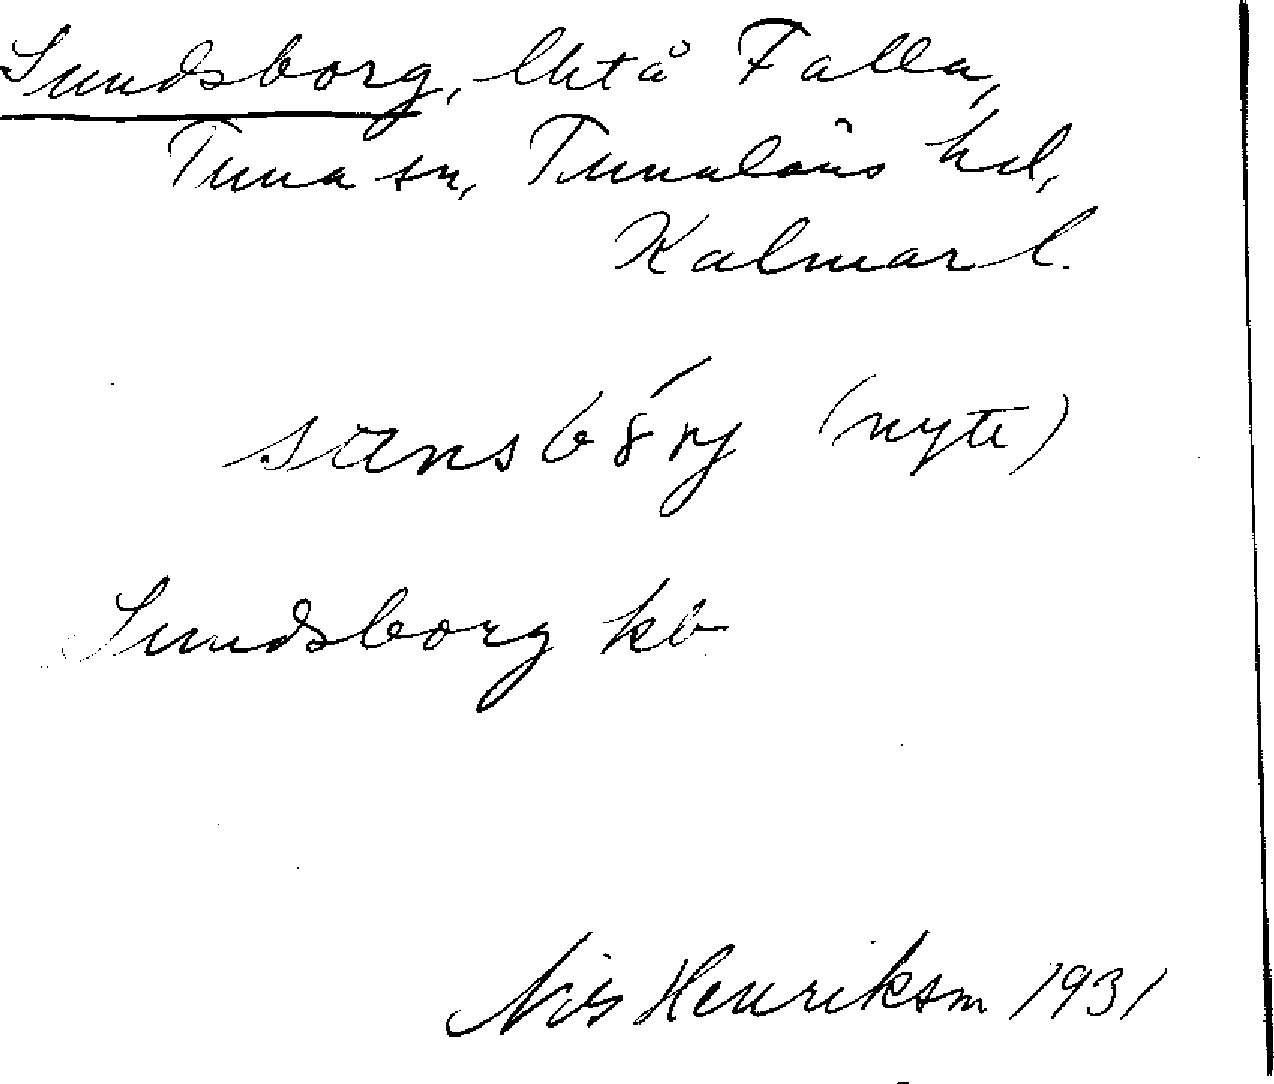 Sundsborg, lht å Falla,
Tuna sn, Tunaläns hd,
Kalmar l.
(nyte)
Sundsborg kb
Nils Henrikson 1931